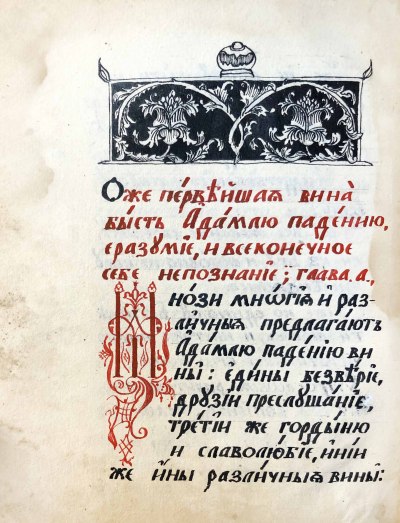 Ѻже первѣ́йшая вина̀
бы́сть Ада́млю паде́нию,
е́разꙋмїе, и всеконе́чное
себѐ непозна́нїе; глава̀. а҃,
Мно́зи мнѡ́гїѧ и раз-
ли́чныѧ предлага́ютъ
Ада́млю паде́нїю ви
ны̀: е҆ди́ны безвѣ́рїе,
дрꙋзі́и преслꙋша́нїе,
тре́тїи же горды́ню
и славолю́бїе, и҆нїи
же и҆́ны разли́чныѧ вины̀: